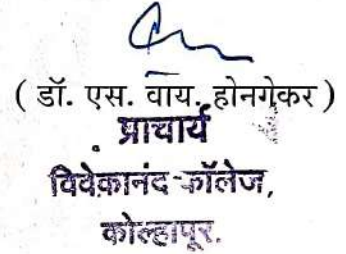 ( डॉ. एस. वाय. होनगेकर )
प्राचार्य
विवेकानंद कॉलेज,
कोल्हापूर.